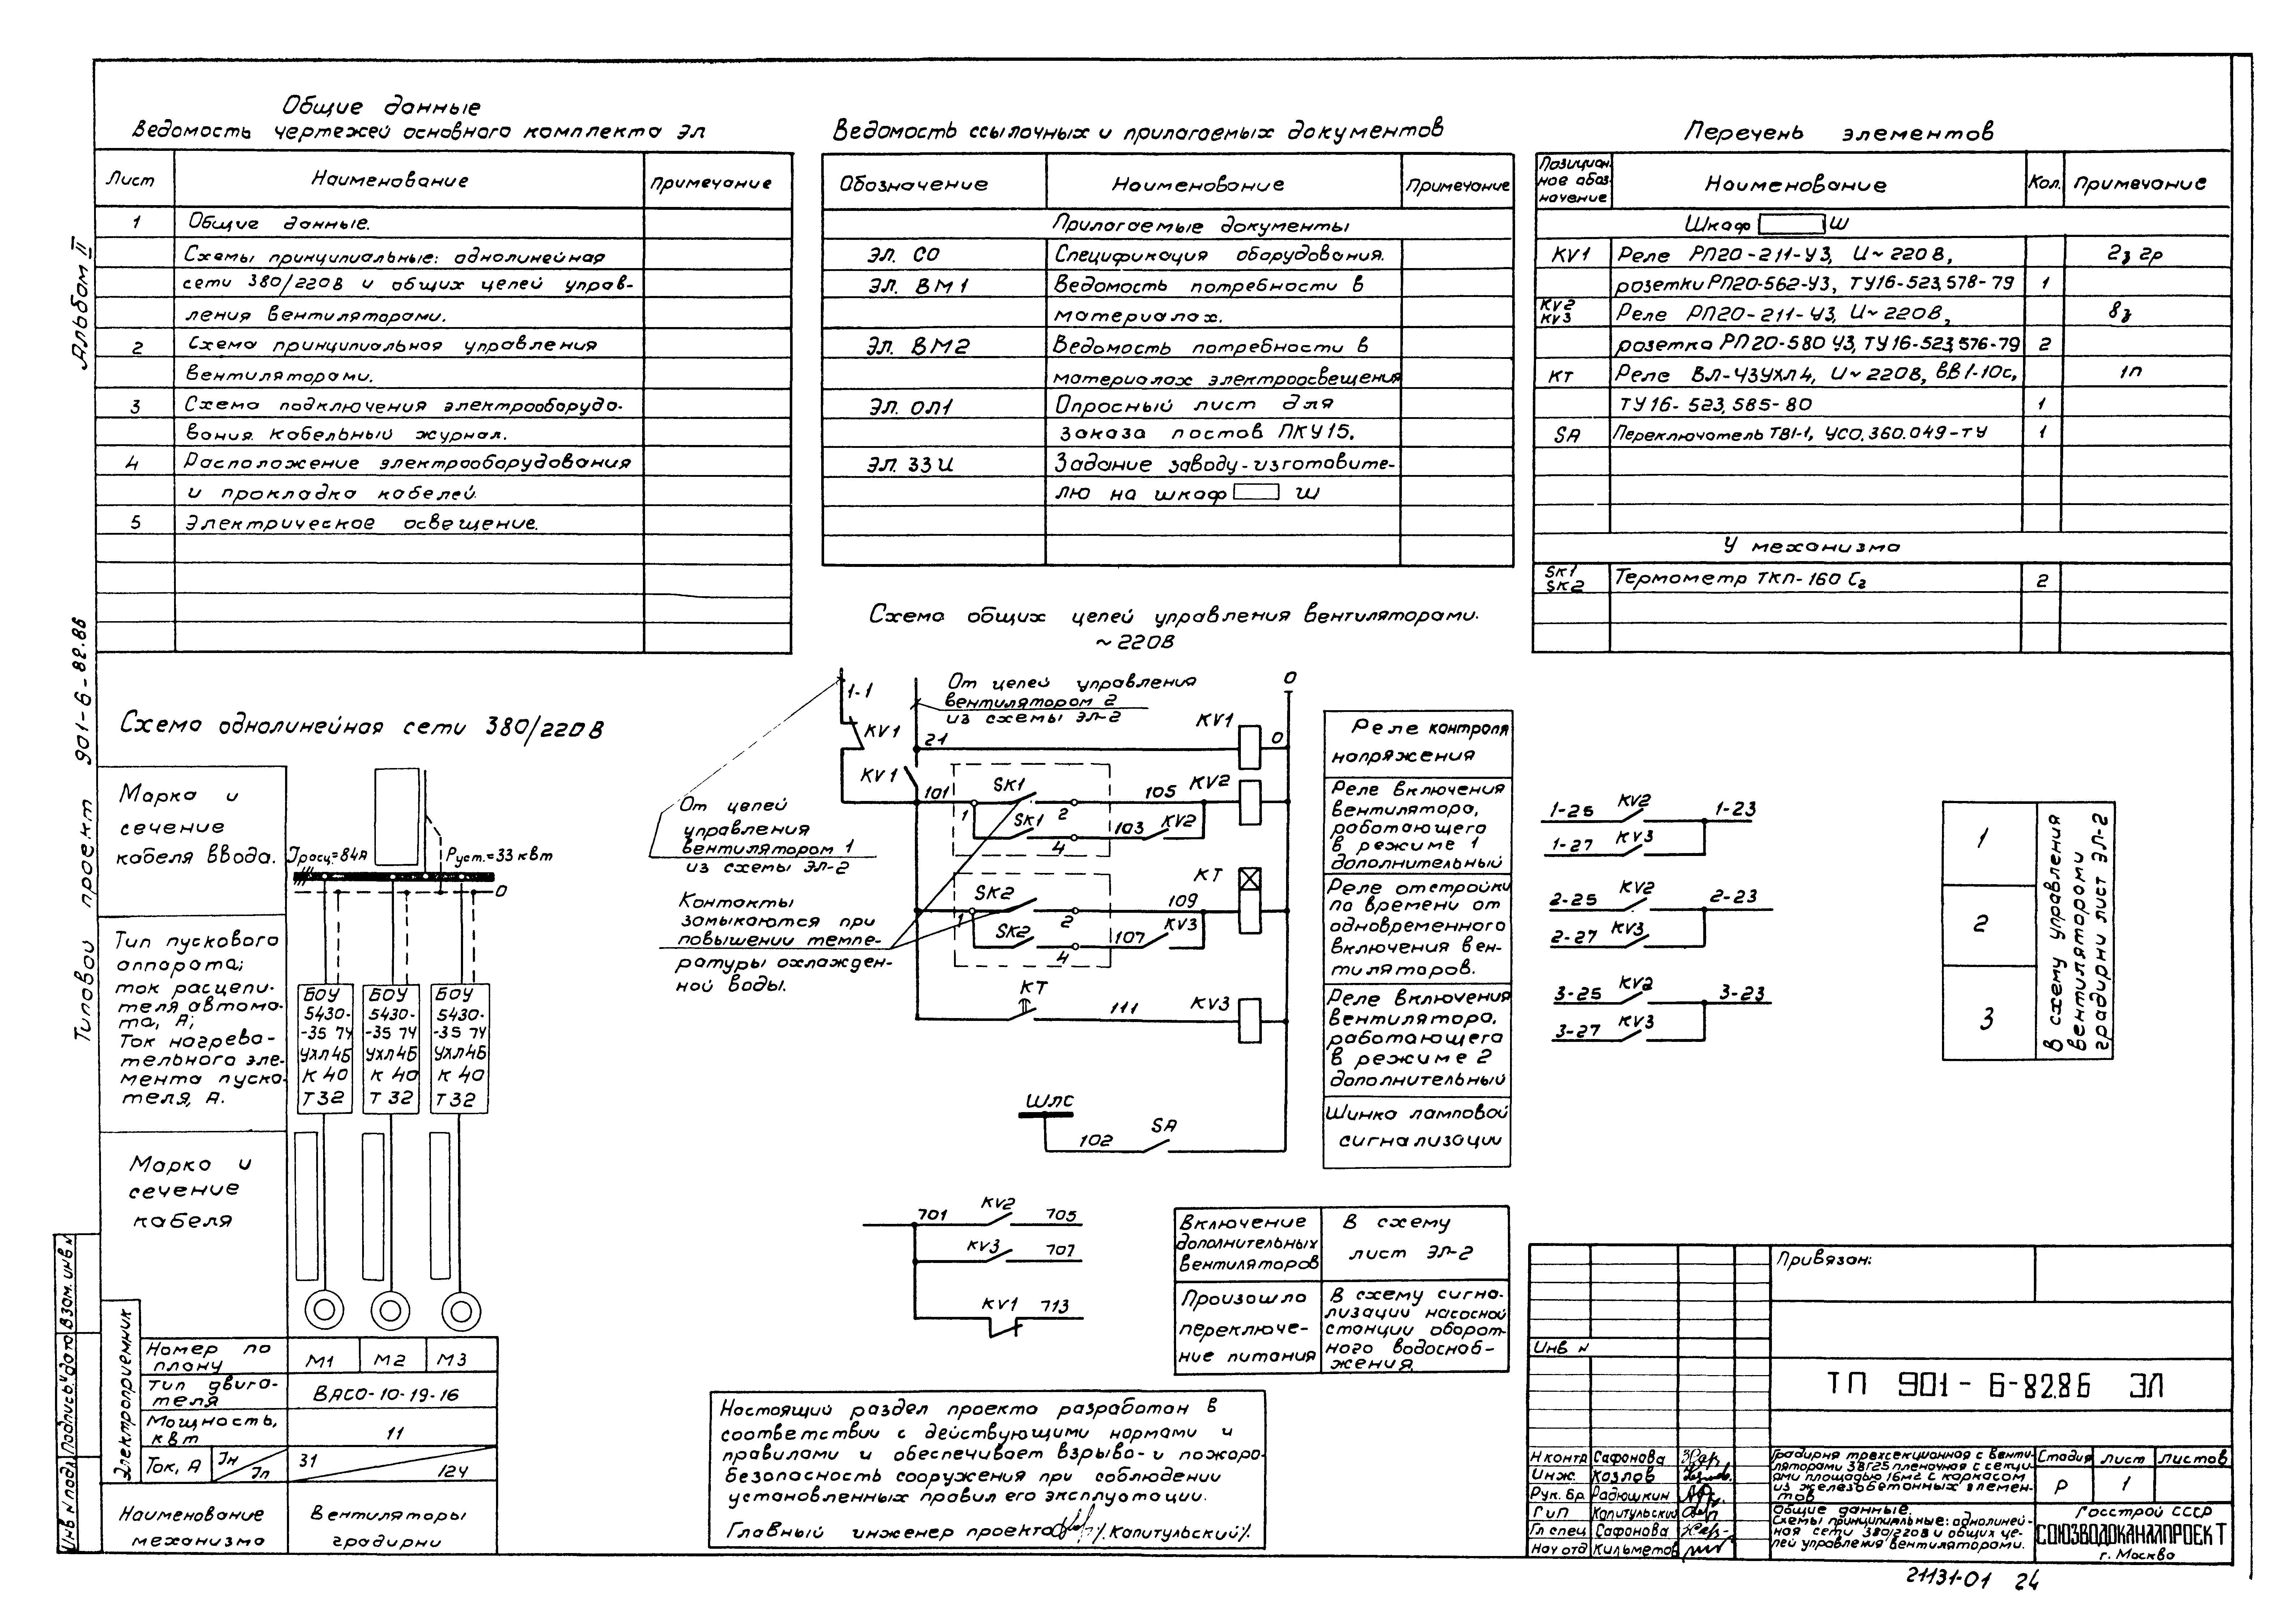 Альбом II
Типовой проект 901-6-82.86
Общие данные
Ведомость чертежей основного комплекта ЭЛ
Лист
Наименование
Примечание
1
Общие данные.
Схемы принципиальные: однолинейная
сети 380/220В и общих цепей управ-
ления вентиляторами.
2
Схема принципиальная управления
вентиляторами.
3
Схема подключения электрооборудо-
вания. Кабельный журнал.
4
Расположение электрооборудования
и прокладка кабелей.
5
Электрическое освещение.
Ведомость ссылочных и прилагаемых документов
Обозначение
Наименование
Примечание
Прилагаемые документы
ЭЛ. СО
Спецификация оборудования.
ЭЛ. ВМ1
Ведомость потребности в
материалах.
ЭЛ. ВМ2
Ведомость потребности в
материалах электроосвещения
ЭЛ. ОЛ1
Опросный лист для
заказа постов ПКУ15.
ЭЛ. ЗЗИ
Задание заводу-изготовите-
лю на шкаф Ш
Перечень элементов
Позицион
ное обоз
начение
Наименование
Кол.
Примечание
Шкаф Ш
KV1
Реле РП20-211-У3, U~220В,
2з 2р
розетки РП20-562-У3, ТУ16-523,578-79
1
KV2
KV3
Реле РП20-211-У3, U~220В,
8з
розетка РП20-580 У3, ТУ16-523,576-79
2
КТ
Реле ВЛ-43УХЛ4, U~220В, ВВ1-10с,
1п
ТУ16-523,585-80
1
SA
Переключатель ТВ1-1, УСО.360.049-ТУ
1
У механизма
SK1
SK2
Термометр ТКП-160 Сг
2
Схема однолинейная сети 380/220В
Марка и
сечение
кабеля ввода.
Iрасц.=84А
Руст.=33 квт
0
Тип пускового
аппарата;
ток расцепи-
теля автома-
та, А;
Ток нагрева-
тельного эле-
мента пуска-
теля, А.
БОУ БОУ БОУ
5430- 5430- 5430-
-35 74 -35 74 -35 74
УХЛ4Б УХЛ4Б УХЛ4Б
К 40 К 40 К 40
Т 32 Т 32 Т 32
Марка и
сечение
кабеля
Электроприемник
Номер по
плану
М1 М2 М3
Тип двига-
теля
ВАСО-10-19-16
Мощность,
квт
11
Ток, А
Iн
Iп
31
124
Наименование
механизма
Вентиляторы
градирни
Схема общих цепей управления вентиляторами.
~220В
1-1
От цепей управления
вентилятором 2
из схемы ЭЛ-2
0
KV1
21
KV1
0
KV1
101
SK1
105
KV2
1
2
SK1
103
KV2
4
От цепей
управления
вентилятором 1
из схемы ЭЛ-2
Контакты
замыкаются при
повышении темпе-
ратуры охлажден-
ной воды.
КТ
SK2
109
1
2
SK2
107
KV3
4
КТ
111
KV3
ШЛС
102
SA
Реле контроля
напряжения
Реле включения
вентилятора,
работающего
в режиме 1
дополнительный
Реле отстройки
по времени от
одновременного
включения вен-
тиляторов.
Реле включения
вентилятора,
работающего
в режиме 2
дополнительный
Шинка ламповой
сигнализации
1-25 KV2 1-23
1-27 KV3
2-25 KV2 2-23
2-27 KV3
3-25 KV2 3-23
3-27 KV3
1
2
3
В схему управления
вентиляторами
градирни лист ЭЛ-2
701 KV2 705
KV3 707
KV1 713
Включение
дополнительных
вентиляторов
В схему
лист ЭЛ-2
Произошло
переключе-
ние питания
В схему сигна-
лизации насосной
станции оборот-
ного водоснаб-
жения.
Настоящий раздел проекта разработан в
соответствии с действующими нормами и
правилами и обеспечивает взрыво- и пожаро-
безопасность сооружения при соблюдении
установленных правил его эксплуатации.
Главный инженер проекта /Капитульский/.
Привязан:
Инв N
ТП 901-6-82.86 ЭЛ
Н контр Сафонова
Инж. Козлов
Рук. бр Радюшкин
ГиП Капитульский
Гл спец Сафонова
Нач отд Кильметов
Градирня трехсекционная с венти-
ляторами 3ВГ25 пленочная с секци-
ями площадью 16м2 с каркасом
из железобетонных элемен-
тов
Стадия Лист Листов
Р 1
Общие данные.
Схемы принципиальные: однолиней-
ная сети 380/220В и общих це-
пей управления вентиляторами.
Госстрой СССР
СОЮЗВОДОКАНАЛПРОЕКТ
г. Москва
Инв N подл. Подпись и дата Взам. инв N
21131-01 24